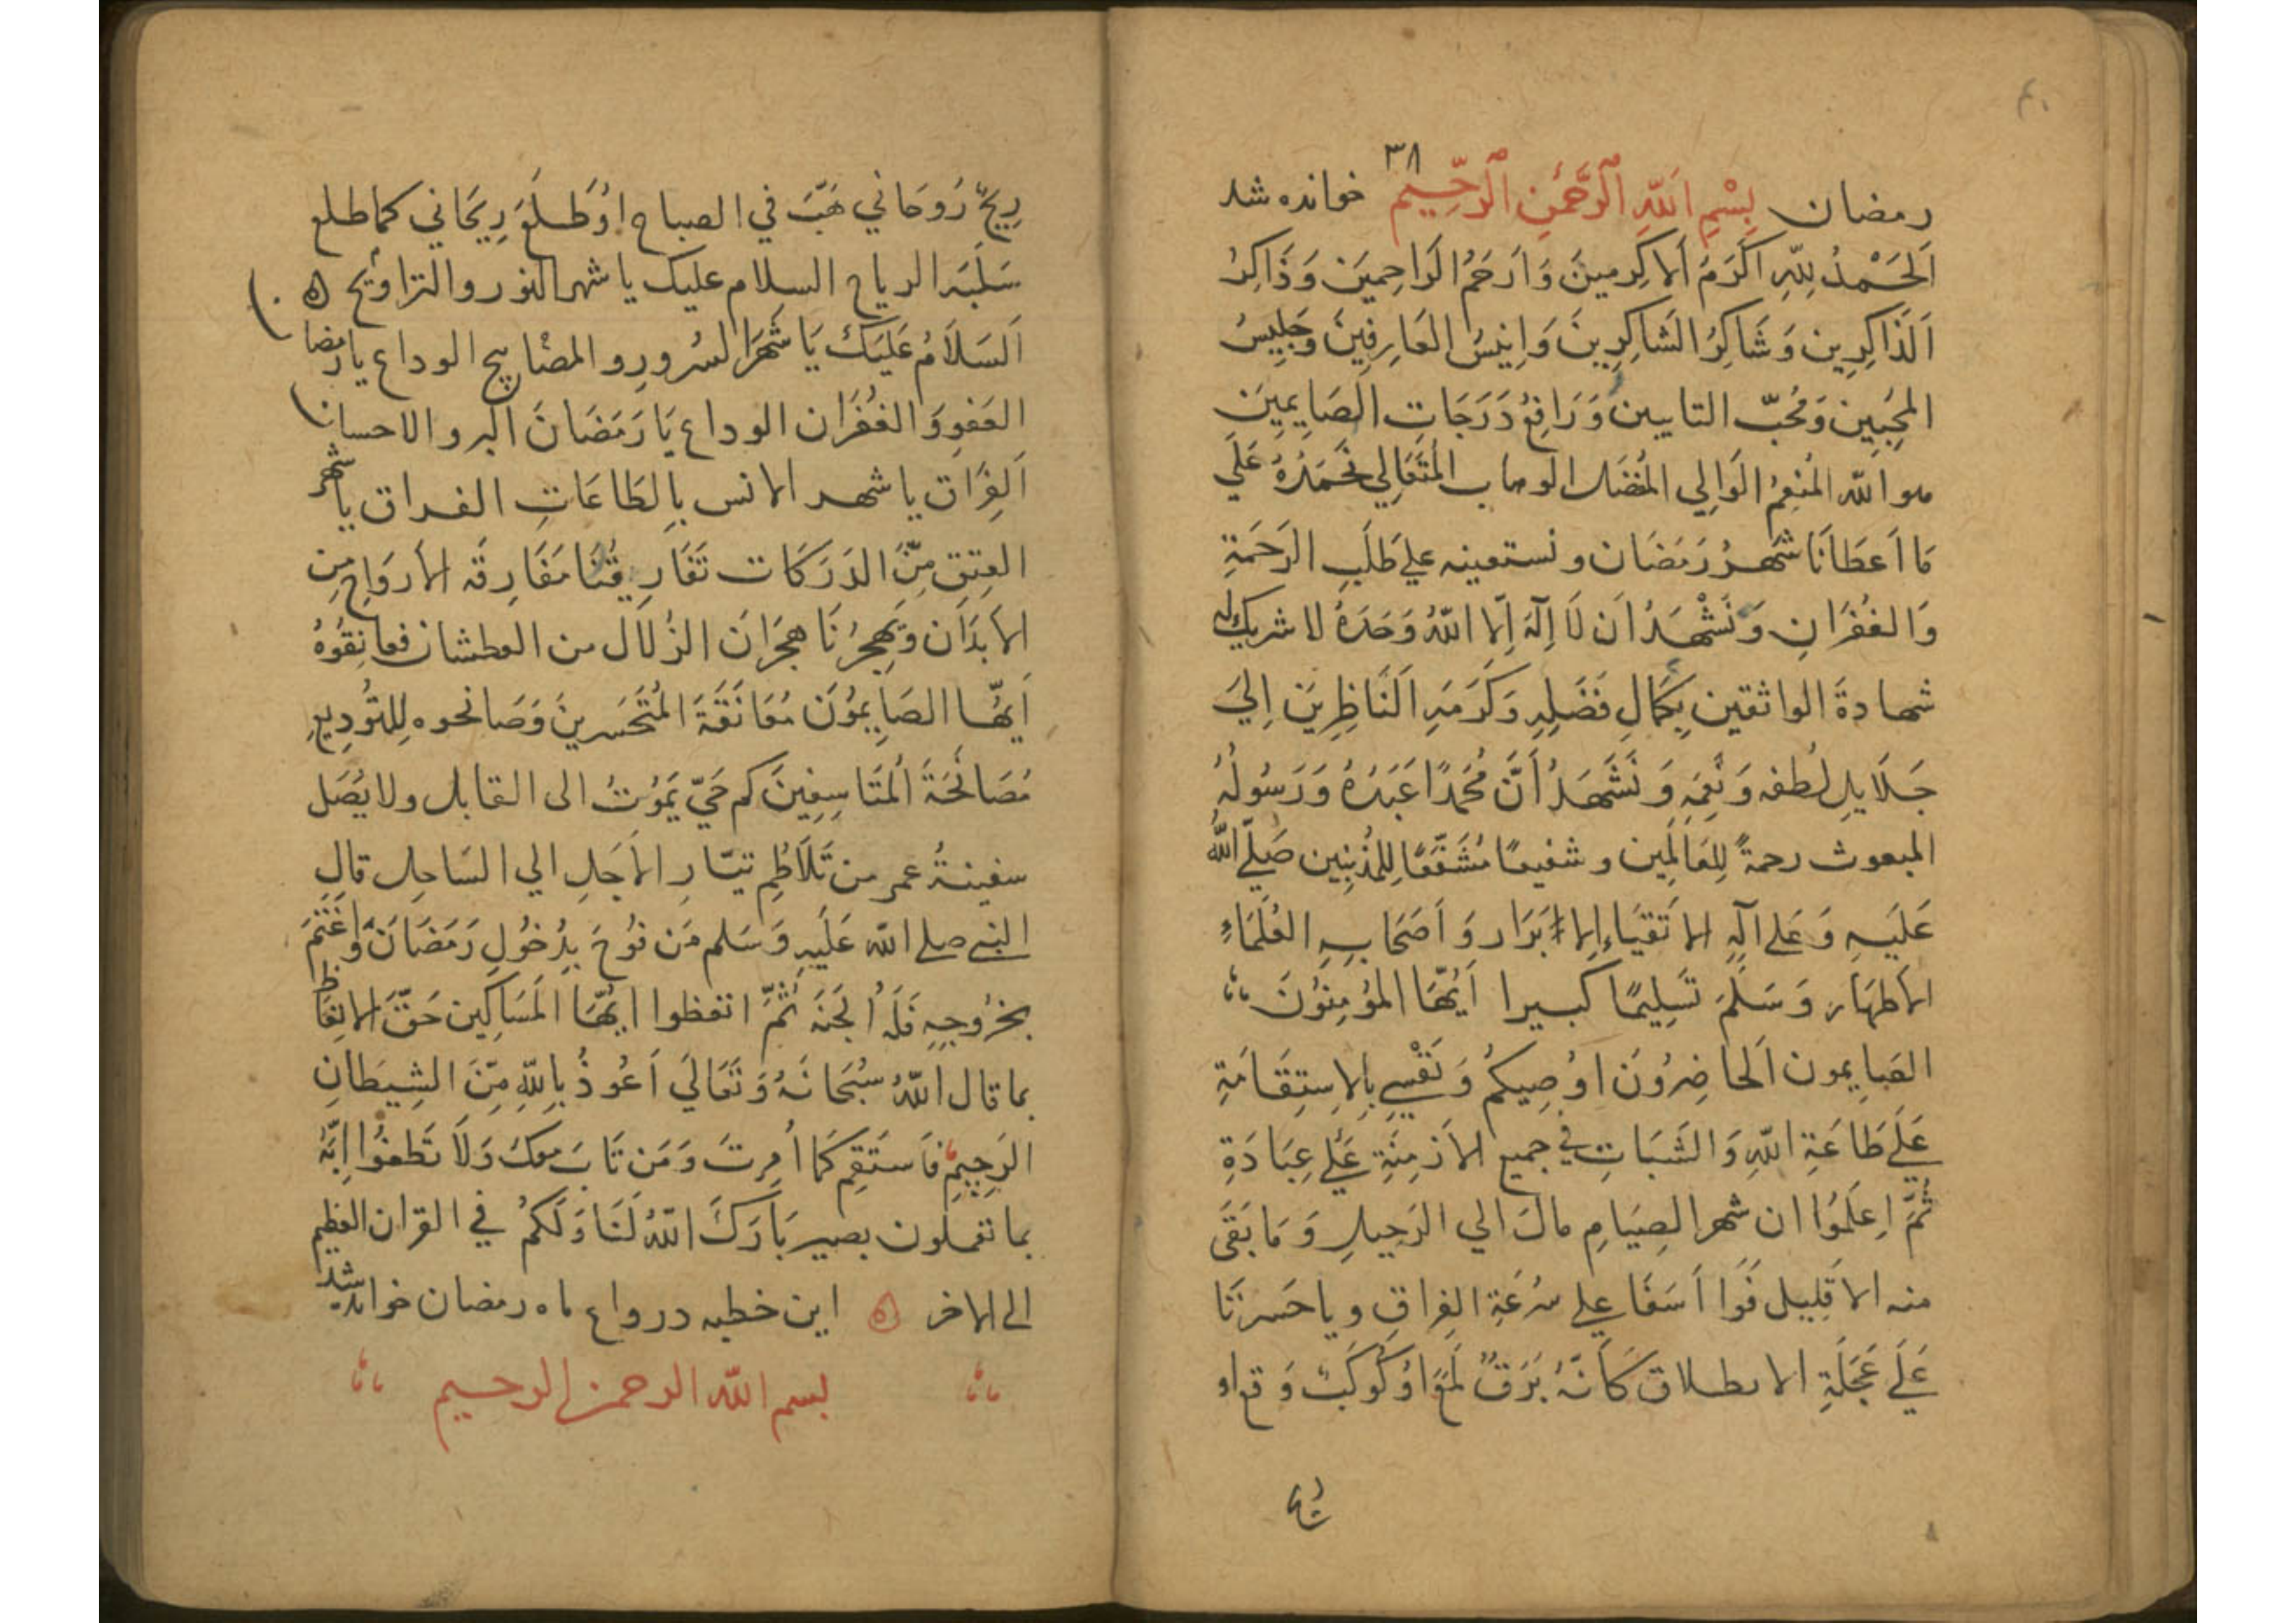 ۴۰
۳۸
رمضان بِسْمِ اللّهِ الرَّحْمٰنِ الرَّحِّيمِ خوانده شد
اَلحَمْدُ لِلّهِ اَكَرَمَ اَلاكِرمينَ وَاَرحَمُ الرَاحِمينَ وَذَاكِرُ
اَلذَاكِرِين وَشَاكِرُ الشَاكِرِينَ وَاِنيسُ العَارِفِينَ وَجَلِيسُ
المحِبِين وَمُحبّ التايبين وَرَافِعُ دَرَجَاتِ الصَايِمِينَ
هو اللّه المُنعِمُ الوَالِي المُفضَل الوهاب المتَعَالِي نَحَمَدُهُ عَلَي
مَا اَعطَانَا شَهرُ رَمَضَان ونستعينه علي طَلَبِ الرَحَمَةِ
وَالغُفرَانِ وَنَشْهَدُ اَن لَا اِلَهَ اِلَّا اللّهُ وَحَدَهُ لا شريك له
شهادةَ الواثقين بِكَمالِ فَضَلِهِ وَكَرَمَهِ اَلنَاظِرِينَ اِليَ
جَلَايلِ لُطفه وَنِعَمِهِ وَنَشَهَدُ اَنَّ مُحَمدًا عَبَدُهُ وَرَسُولُهُ
المبعوث رحمةً لِلعَالَمِين وشفيعًا مُشَفَّعًا لِلمُذنِبِين صَلّي اللّهُ
عَلَيهِ وَعَلي آلِهِ الاتَقيَاءِ الاَبَرَار وَاَصَحَابِهِ العُلَمَاءِ
الاَطهَارِ وَسَلَمَ تَسَلِيمًا كبيرا اَيُهَّا المؤمِنُونَ
الصَايمون اَلحاضِرُونَ اوُصِيكُم وَنَفْسِي بِالاِستِقَامَةِ
عَلَي طَاعَةِ اللّهِ وَالثَبَاتِ في جميع الاَزمِنَةِ عَلي عِبَادَةِ
ثُمَّ اِعلَمُوا ان شهر الصِيَامِ مالَ الي الرَحِيلِ وَمَا بَقَي
منه الا قَلِيل فَوَا اَسَفَا علي سُرعَةِ الفِراقِ وياحَسرتَا
عَلَي عَجَلَةِ الانطلاق كَاَنَّهُ بَرَقٌ لَمَعَ اوُ كَوكَبٌ وَقع او
ريحٌ رُوحَاني هَبَّ في الصباح اوُ طَلَعَ رِيحَاني كماطلع
سَلَبَه الرياح السلام عليك يا شهر النور والتراويح ه
اَلسَلَامُ عَلَيَكَ يَا شَهرَ السُرورِ والمصَابيح الوداع يا رمضان
العَفوِ وَالغُفرَان الوداع يَا رَمَضَانَ البر والاحسان
اَلفِرَاق يا شهر الانس بالطَاعَاتِ الفراق يا شهر
العِتِق مِنَّ الدَرَكَات تَفَارِيقُنَا مَفَارِقَه الاَروَاحِ مِن
الاَبدَان وَيَهِجرُنَا هِجرَانَ الزُلال من العطشان فعانِقُوهُ
اَيهَّا الصَايِموُن مُعَانَقَةَ المُتَحَسرينَ وَصَافحوه لِلتُودِيعِ
مُصَافَحَةَ المَتَاسِفِينَ كم حَيّ يَموُتُ الى القابل ولا يُصَل
سفينةُ عمر من تَلَاطُمِ تيّارِ الاَجَلِ الي السَاحِلِ قالِ
النبي صلي اللّه عَلَيهِ وَسَلم مَن فَرُحَ بِدُخُولِ رَمَضَانَ وَاغَتَمَّ
بخرُوجِهِ فَلَهُ اُلجَنَه ثُمَّ اتعظوا ايُهَّا المَسَاكِين حَقّ الاتِعَاظ
بما قال اللّهُ سُبُحَانَهُ وَتَعَالَي اَعُوذُ بِاللّهِ مِنَّ الشِيطَانِ
الرَجِيمِ فَاَستَقِم كَمَا اُمِرتَ وَمَن تَابَ معكَ وَلَا تَطغَوُا اِنَّهُ
بما تعملون بصير بَارَكَ اللّهُ لَنَا وَلَكمُ في القران العظيم
الى الاخر ه این خطبه در وداع ماه رمضان خوانده شد
بسم اللّه الرحمن الرحيم